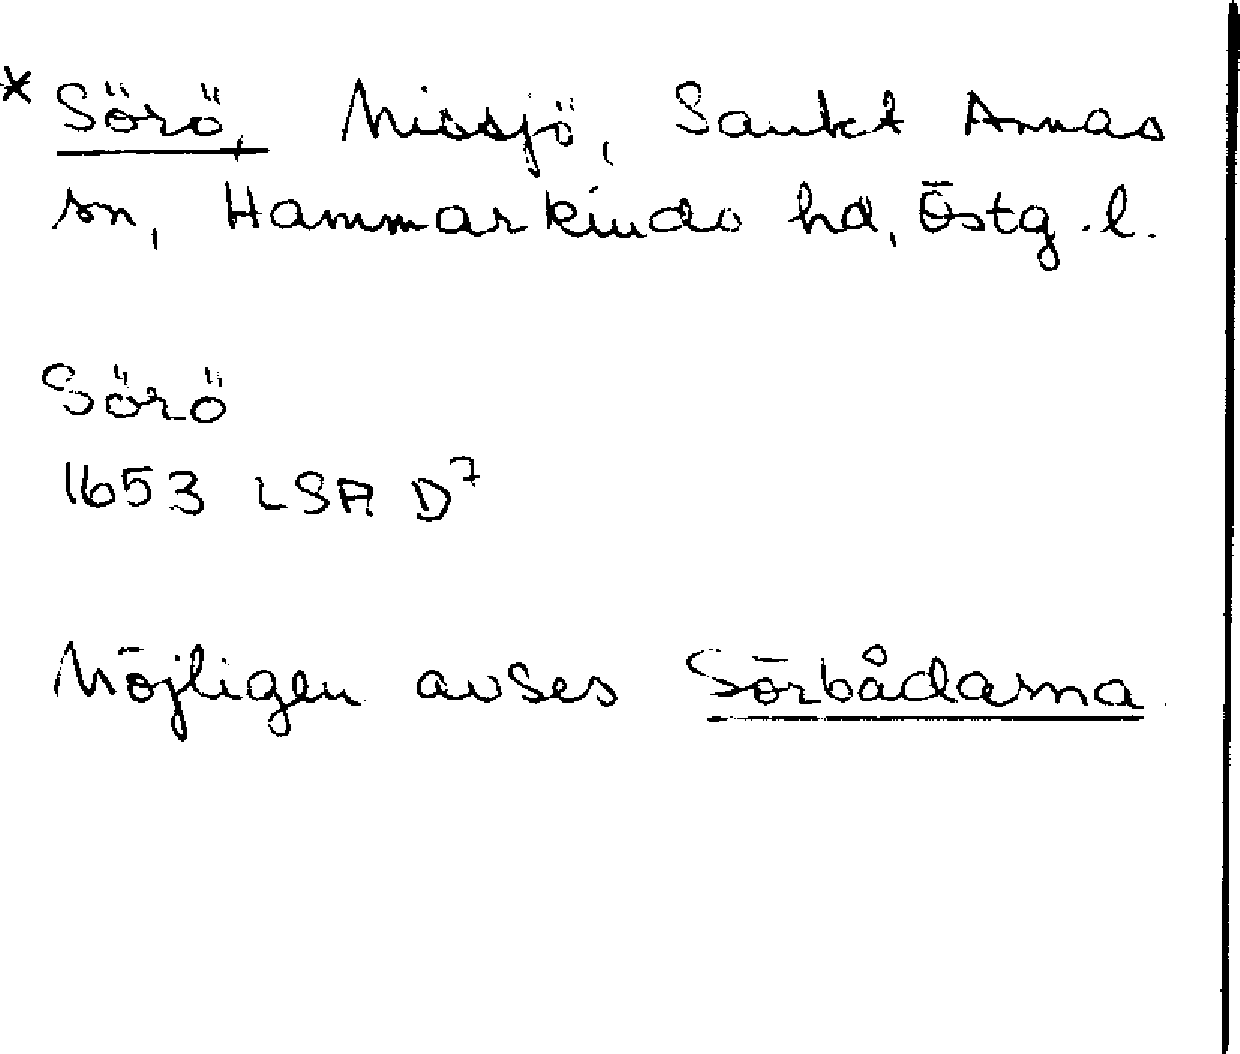 * Sörö, Missjö, Sankt Annas
sn, Hammarkinds hd, Östg.l.
Sörö
1653 LSA D7
Möjligen avses Sörbådarna.